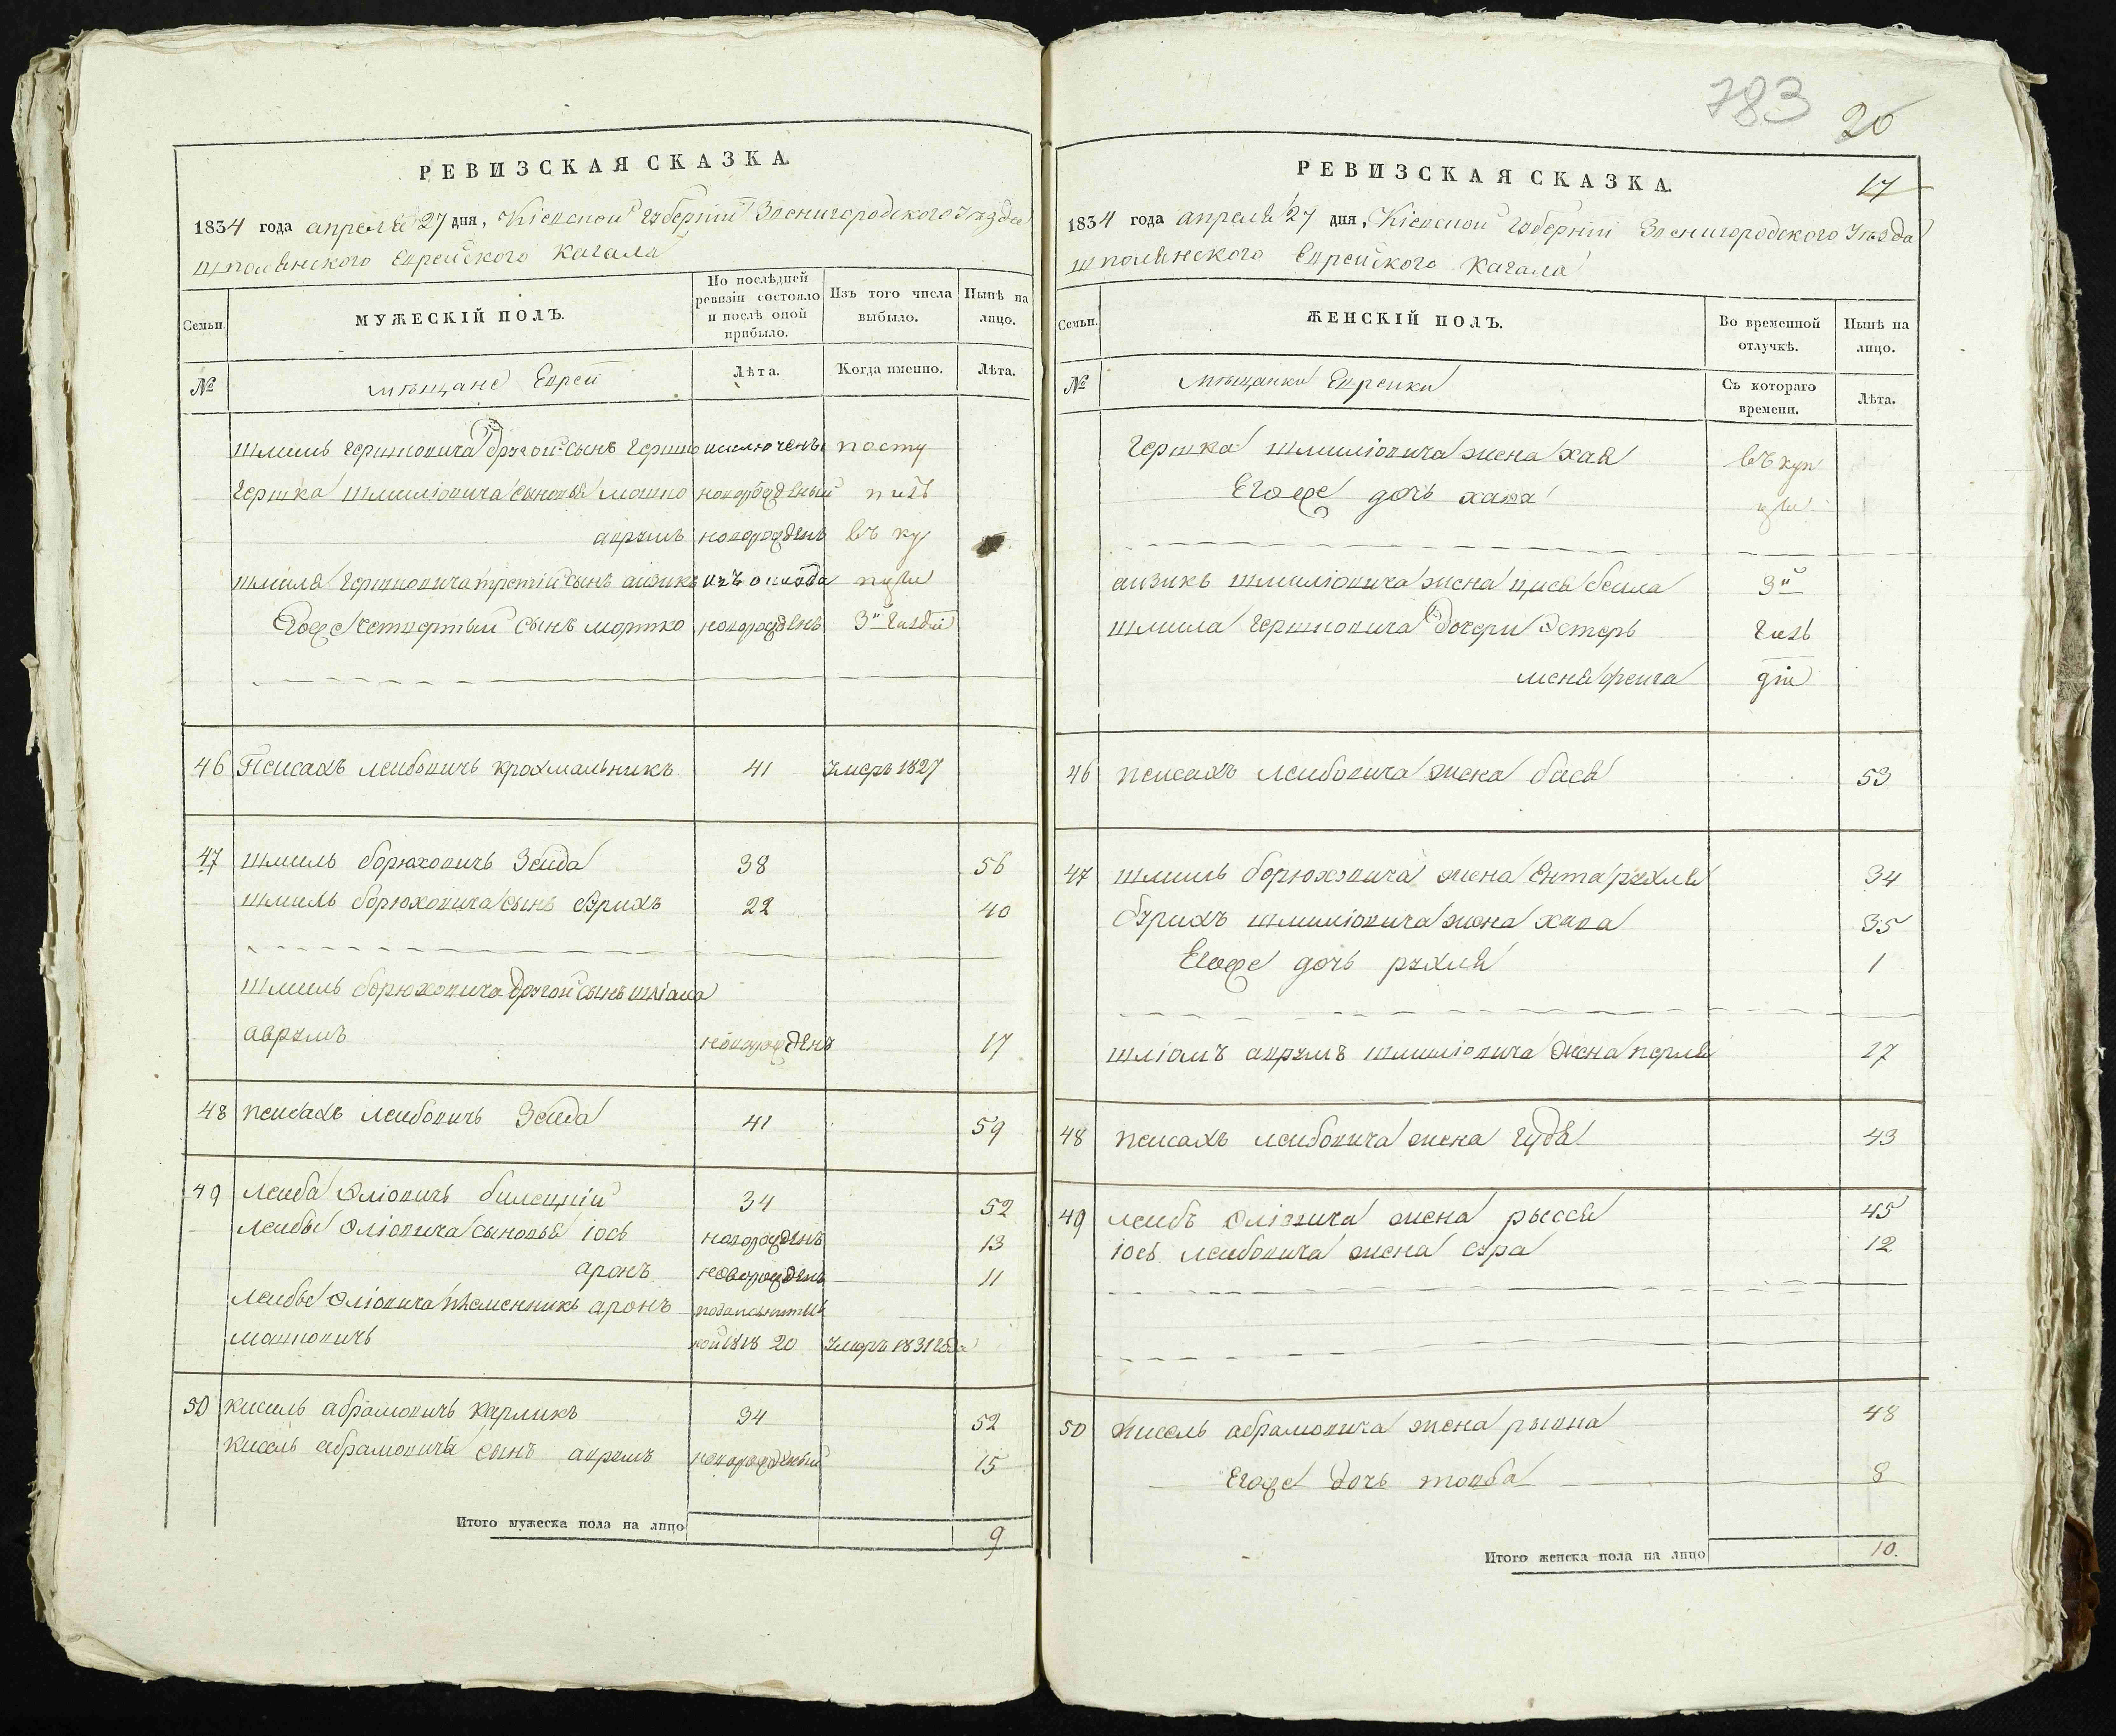 РЕВИЗСКАЯ СКАЗКА.
1834 года апреля 27 дня, Кіевской Губерніи Звенигородского Уѣзда
шполянского Еврейского Кагала
Семьи.
МУЖЕСКІЙ ПОЛЪ.
По послѣдней ревизіи состояло и послѣ оной прибыло.
Изъ того числа выбыло.
Нынѣ на лицо.
№
мѣщане Евреи
Лѣта.
Когда именно.
Лѣта.
шмиль Гершковича другой сынъ Гершко исключены посту
Гершка шмиліовича сыновья мошко новорожденный пилъ
аврумъ новорожденъ въ ку
шмиля Гершковича третій сынъ аизикъ изъ оклада пцы
Егоже четвертый сынъ мортко новорожденъ 3й Гильдіи
46 Пейсахъ лейбовичъ крохмальникъ 41 умеръ 1827
47 шмиль борюховичъ Зейда 38 56
шмиль борюховича сынъ бѣрихъ 22 40
шмиль борюховича другой сынъ шліома
аврумъ новорожденъ 17
48 пейсахъ лейбовичъ Зейда 41 59
49 лейба Эліовичъ билецкій 34 52
лейбы Эліовича сыновья іось новорожденъ 13
аронъ новорожденъ 11
лейбы Эліовича племенникъ аронъ
мошковичъ 1818 20 умеръ 1831 года
50 кисиль абрамовичъ карликъ 34 52
кисель абрамовича сынъ аврумъ новорожденный 15
Итого мужеска пола на лицо 9
783 20
РЕВИЗСКАЯ СКАЗКА.
17
1834 года апреля 27 дня, Кіевской Губерніи Звенигородского Уѣзда
шполянского Еврейского Кагала
Семьи.
ЖЕНСКІЙ ПОЛЪ.
Во временной отлучкѣ.
Нынѣ на лицо.
№
мѣщанки Еврейки
Съ котораго времени.
Лѣта.
Гершка шмиліовича жена хая въ куп
Егоже дочь хава цы
аизикъ шмиліовича жена цися бейла 3й
шмила Гершковича дочери Эстеръ Гиль
меня фейга діи
46 пейсахъ лейбовича жена бася 53
47 шмиль борюховича жена Ента рухля 34
бѣрихъ шмиліовича жена хава 35
Егоже дочь рухля 1
шліомъ аврумъ шмиліовича жена перля 17
48 пейсахъ лейбовича жена гудя 43
49 лейбъ Эліовича жена рыася 45
іось лейбовича жена сура 12
50 кисель абрамовича жена рывка 48
Егоже дочь товба 8
Итого женска пола на лицо 10.